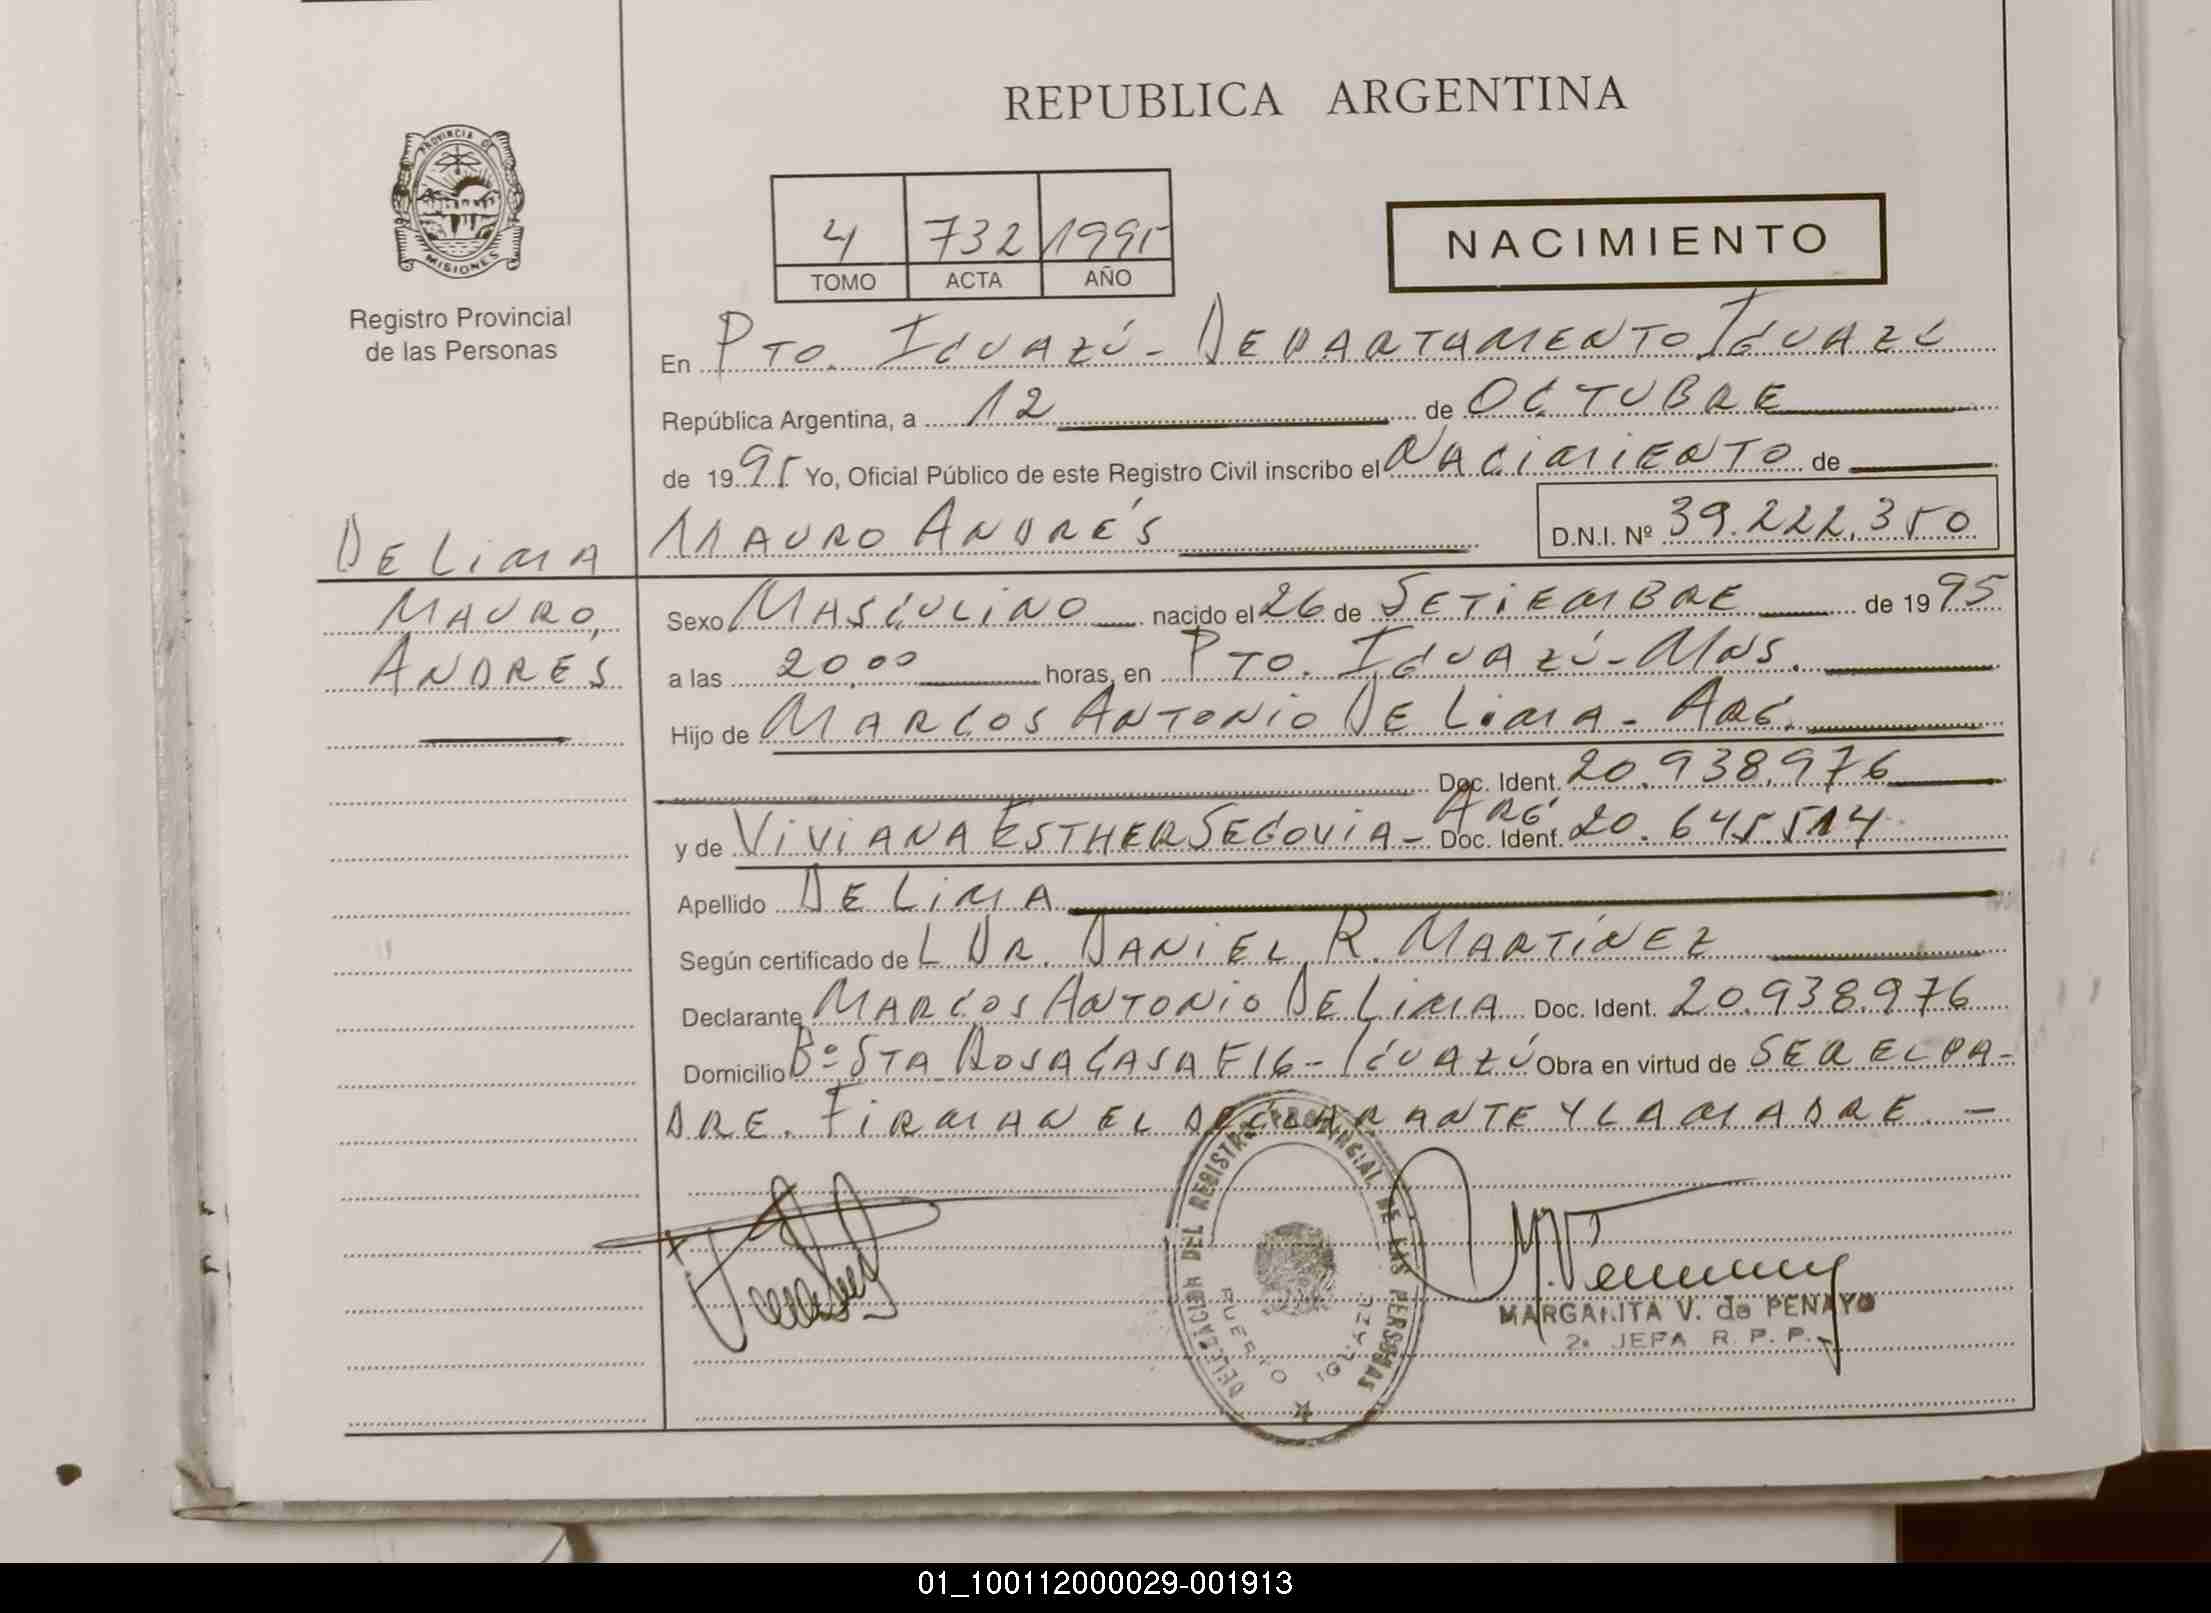 REPUBLICA ARGENTINA
PROVINCIA DE
MISIONES
Registro Provincial
de las Personas
4 732 1995
TOMO ACTA AÑO
NACIMIENTO
En PTO. IGUAZÚ - DEPARTAMENTO IGUAZÚ
República Argentina, a 12 de OCTUBRE
de 1995 Yo, Oficial Público de este Registro Civil inscribo el NACIMIENTO de
DE LIMA
MAURO ANDRÉS D.N.I. Nº 39.222.350
MAURO,
ANDRÉS
Sexo MASCULINO nacido el 26 de SETIEMBRE de 1995
a las 20,00 horas, en PTO. IGUAZÚ - MNS.
Hijo de MARCOS ANTONIO DE LIMA - ARG.
Doc. Ident. 20.938.976
y de VIVIANA ESTHER SEGOVIA - ARG. Doc. Ident. 20.645.514
Apellido DE LIMA
Según certificado de L DR. DANIEL R. MARTÍNEZ
Declarante MARCOS ANTONIO DE LIMA Doc. Ident. 20.938.976
Domicilio Bº STA ROSA CASA F16 - IGUAZÚ Obra en virtud de SER EL PA-
DRE. FIRMAN EL DECLARANTE Y LA MADRE. -
DELEGACION DEL REGISTRO PROVINCIAL DE LAS PERSONAS
PUERTO IGUAZU
MARGARITA V. de PENAYO
2º JEFA R. P. P.
01_100112000029-001913